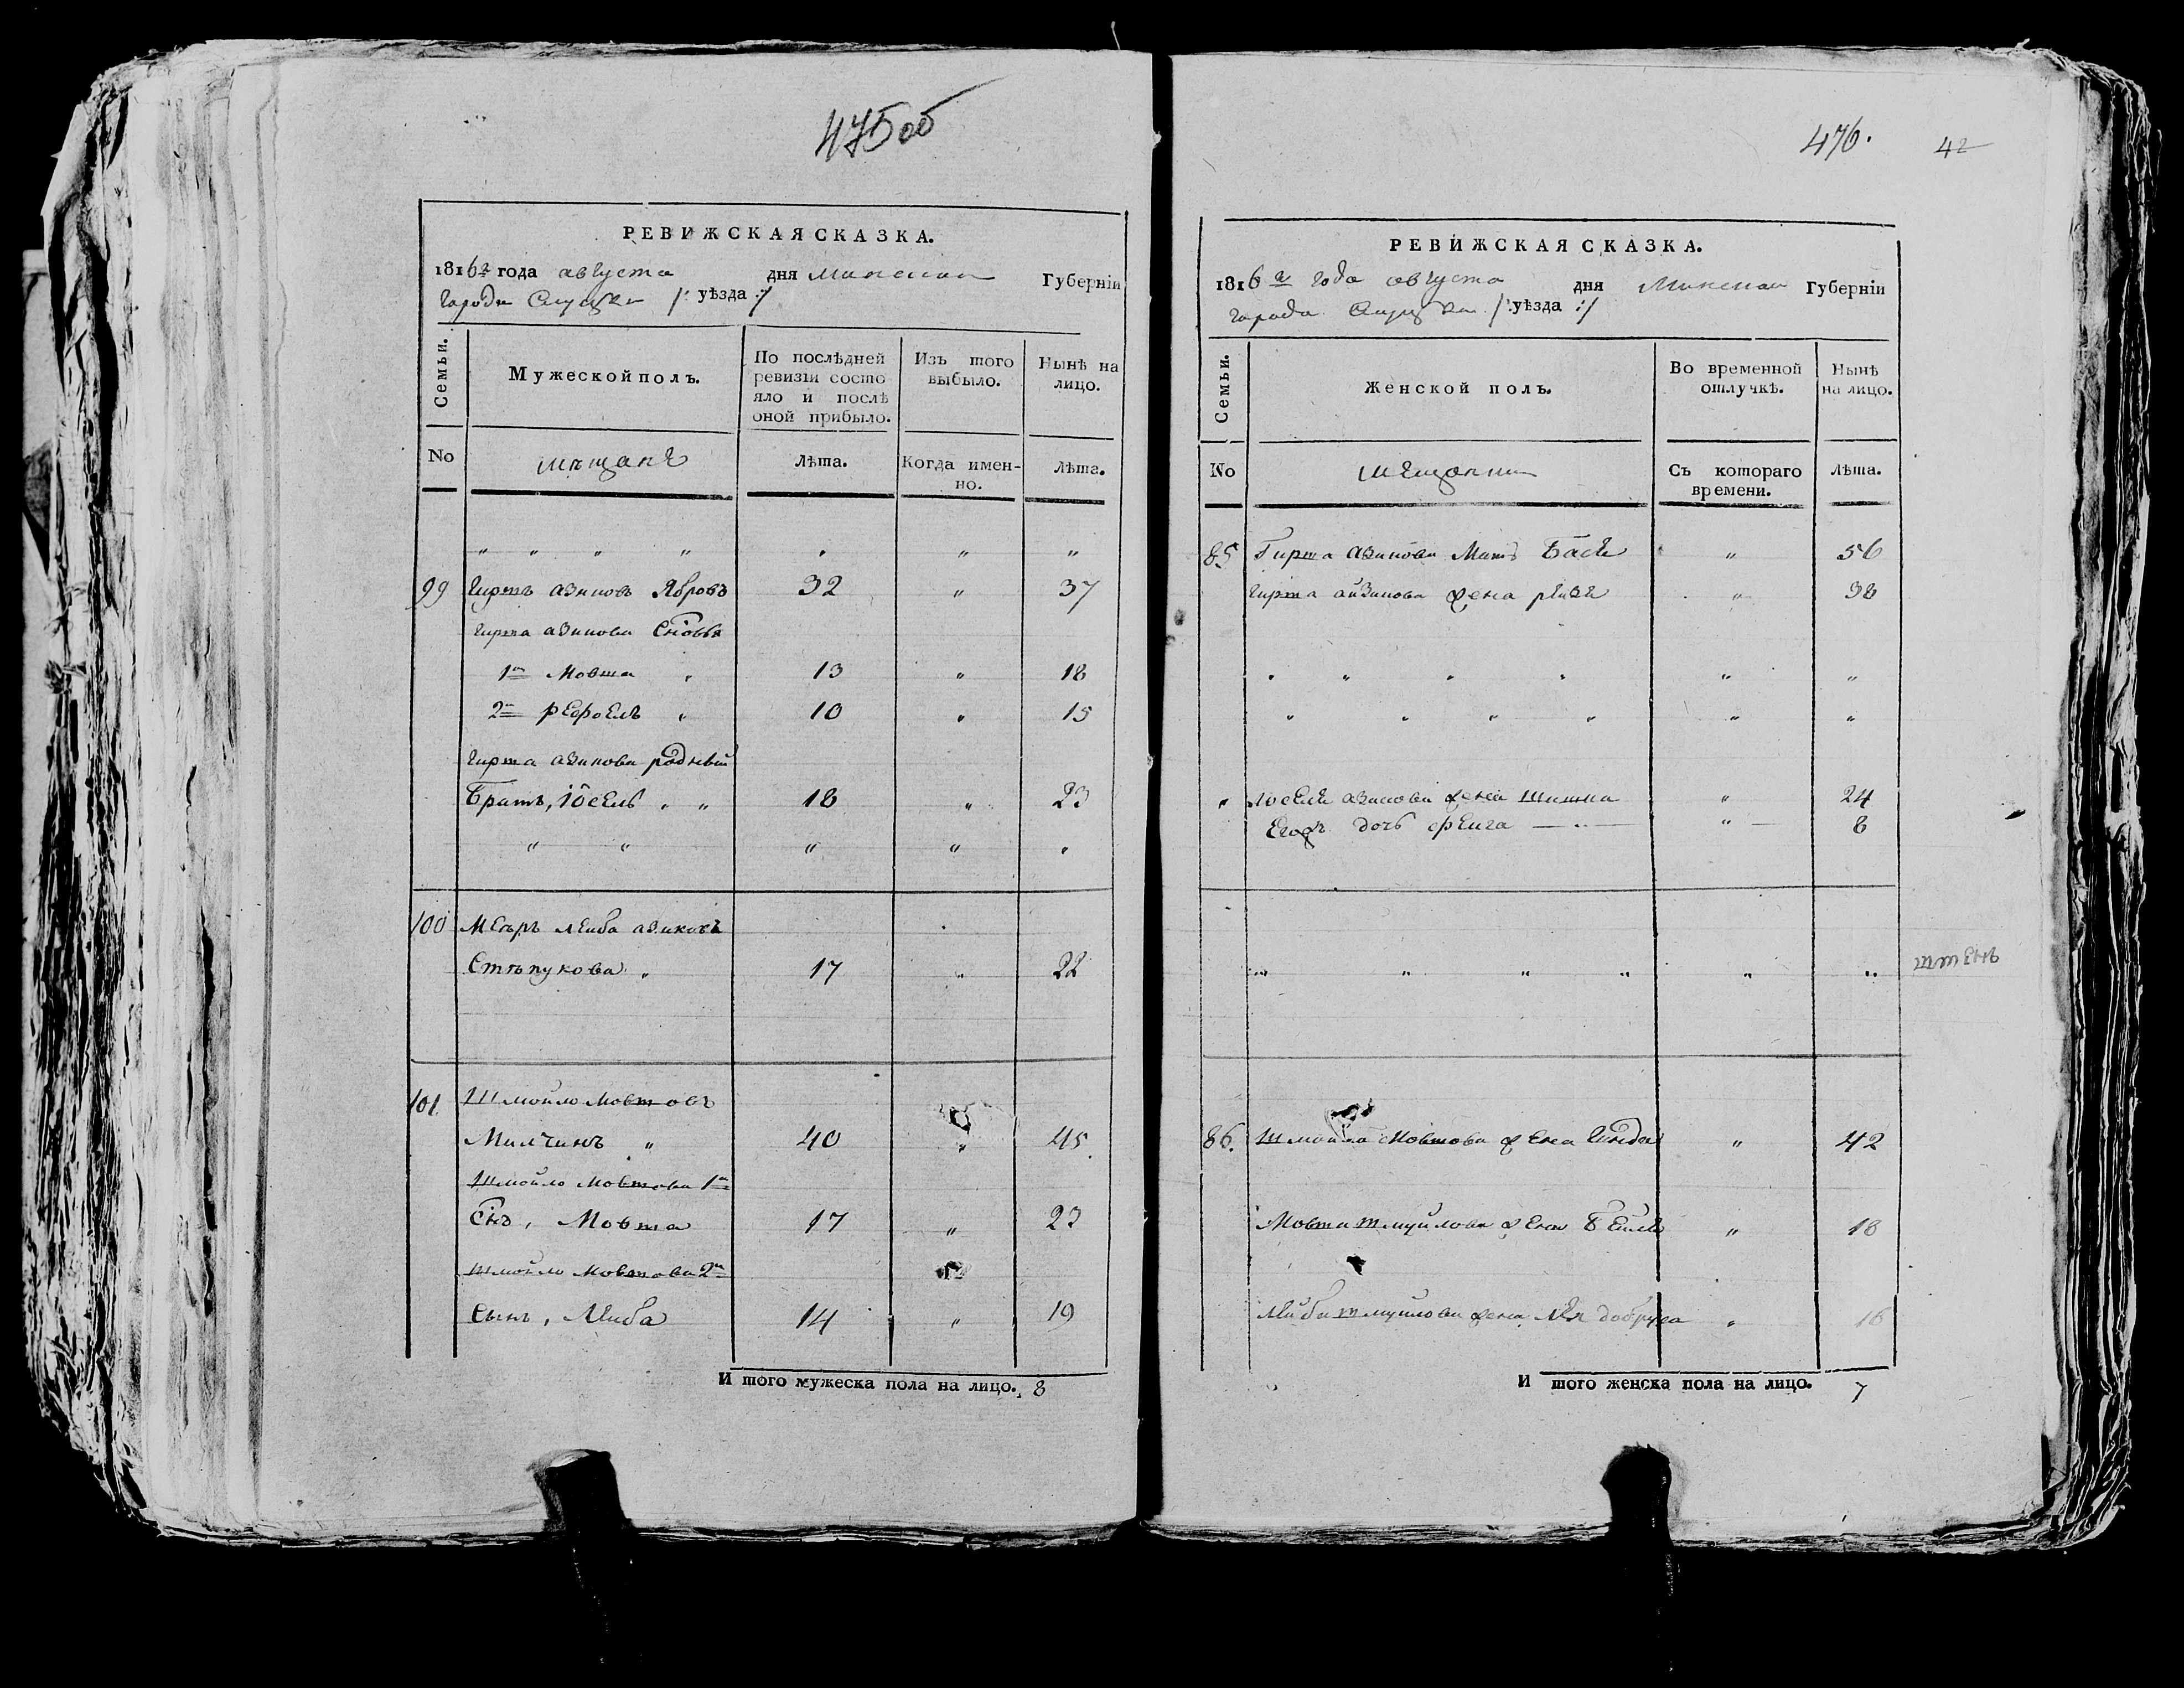 475 об
РЕВИЖСКАЯ СКАЗКА.
1816го года августа дня Минской Губернїи
города Слуцка /: уѣзда :/
Семьи.
Мужеской полъ.
По послѣдней ревизїи состо
яло и послѣ
оной прибыло.
Изъ того выбыло.
Нынѣ на лицо.
No
мѣщанѣ
Лѣта.
Когда имен-
но.
Лѣта.
" " " " " " "
99 Гиршъ Азиковъ 32 " 37
Гирша Азикова Сновья
1й Мовша " 13 " 18
2й " 10 " 15
Гирша Азикова родный
Братъ, Іосель " " 18 " 23
" " " " "
100 Меэръ Лейба Азиковъ
" 17 " 22
101 Шмойло Мовшовъ
Милчинъ " 40 " 45
Шмойло Мовшова 1й
Снъ, Мовша 17 " 23
Шмойло Мовшова 2й
Сынъ, Лейба 14 " 19
И того мужеска пола на лицо. 8
476.
42
РЕВИЖСКАЯ СКАЗКА.
1816го года августа дня Минской Губернїи
города Слуцка /: уѣзда :/
Семьи.
Женской полъ.
Во временной
отлучкѣ.
Нынѣ
на лицо.
No
мещанки
Съ котораго
времени.
Лѣта.
85 Гирша Азикова Мать Бася " 56
Гирша Айзикова жена " 38
" " " " " "
" " " " " "
" Іоселя Азикова жена " 24
Егожъ дочь Фейга " 8
" " " " " "
86. Шмойла Мовшова жена " 42
Мовши Шмуйлова жена Бейля " 18
Лейбы Шмуйлова жена " 16
И того женска пола на лицо. 7